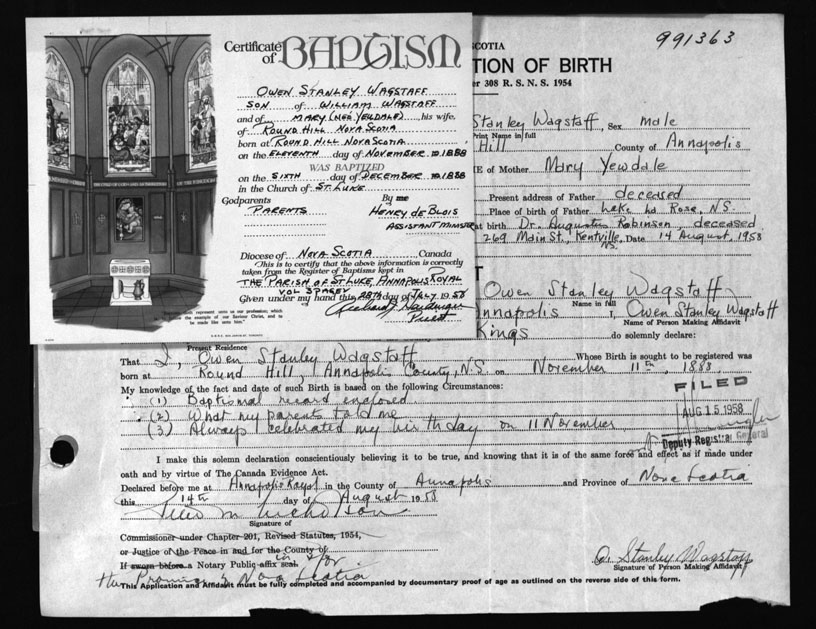 Certificate
of BAPTISM
OWEN STANLEY WAGSTAFF
SON of WILLIAM WAGSTAFF
and of MARY (NEÉ YEWDALE) his wife,
of ROUND HILL NOVA SCOTIA
born at ROUND HILL NOVA SCOTIA
on the ELEVENTH day of NOVEMBER 1888
WAS BAPTIZED
on the SIXTH day of DECEMBER 1888
in the Church of ST. LUKE
Godparents By me
PARENTS HENRY DE BLOIS
ASSISTANT MINISTER
Diocese of NOVA SCOTIA, Canada
This is to certify that the above information is correctly
taken from the Register of Baptisms kept in
THE PARISH OF ST LUKE, ANNAPOLIS ROYAL
Given under my hand this 28th day of JULY 1958
represent unto us our profession; which
the example of our Saviour Christ, and to
be made like unto him."
SCOTIA 991363
TION OF BIRTH
308 R. S. N. S. 1954
Stanley Wagstaff, Sex male
Print Name in full
Hill County of Annapolis
E of Mother Mary Yewdale
Present address of Father deceased
Place of birth of Father Lake La Rose, N.S.
at birth Dr. Augustus Robinson, deceased
269 Main St., Kentville, N.S. Date 14 August, 1958
T
Owen Stanley Wagstaff
Name in full
Annapolis I, Owen Stanley Wagstaff
Name of Person Making Affidavit
Kings do solemnly declare:
Present Residence
That I, Owen Stanley Wagstaff Whose Birth is sought to be registered was
born at Round Hill, Annapolis County, N.S. on November 11th, 1888.
My knowledge of the fact and date of such Birth is based on the following Circumstances:
(1) Baptismal record enclosed
(2) What my parents told me
(3) Always celebrated my birthday on 11 November
FILED
AUG 15 1958
Deputy Registrar General
I make this solemn declaration conscientiously believing it to be true, and knowing that it is of the same force and effect as if made under
oath and by virtue of The Canada Evidence Act.
Declared before me at Annapolis Royal in the County of Annapolis and Province of Nova Scotia
this 14th day of August 1958
Signature of
Commissioner under Chapter 201, Revised Statutes, 1954,
or Justice of the Peace in and for the County of
If sworn before a Notary Public affix seal in & for
the Province of Nova Scotia
O. Stanley Wagstaff
Signature of Person Making Affidavit
This Application and Affidavit must be fully completed and accompanied by documentary proof of age as outlined on the reverse side of this form.